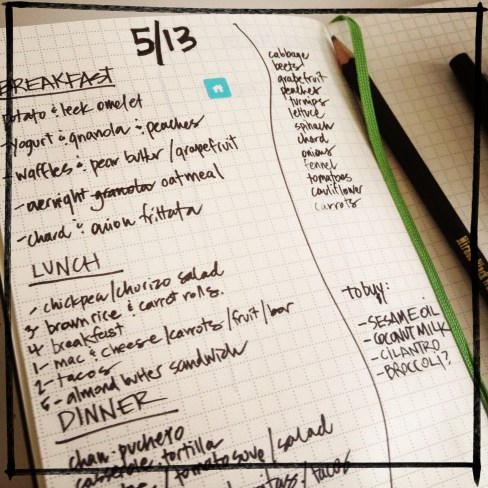 5/13
BREAKFAST
potato & leek omelet
- yogurt & granola & peaches
- waffles & pear butter / grapefruit
- overnight granola oatmeal
- chard & onion frittata
LUNCH
- chickpea/chorizo salad
3 brown rice & carrot rolls.
4 breakfast
1- mac & cheese/carrots/fruit/bar
2- tacos
5 - almond butter sandwich
DINNER
puchero
casserole tortilla
/ tomato soup / salad
/ tacos
cabbage
beets
grapefruit
peaches
turnips
lettuce
spinach
chard
onions
fennel
tomatoes
cauliflower
carrots
to buy:
- SESAME OIL
- COCONUT MILK
- CILANTRO
- BROCCOLI?